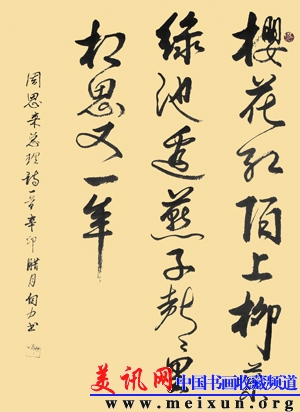 櫻花红陌上柳葉
綠池邊燕子聲々里
相思又一年
周恩来总理詩一首辛卯腊月 力书
美讯网
中国书画收藏频道
www.meixun.org